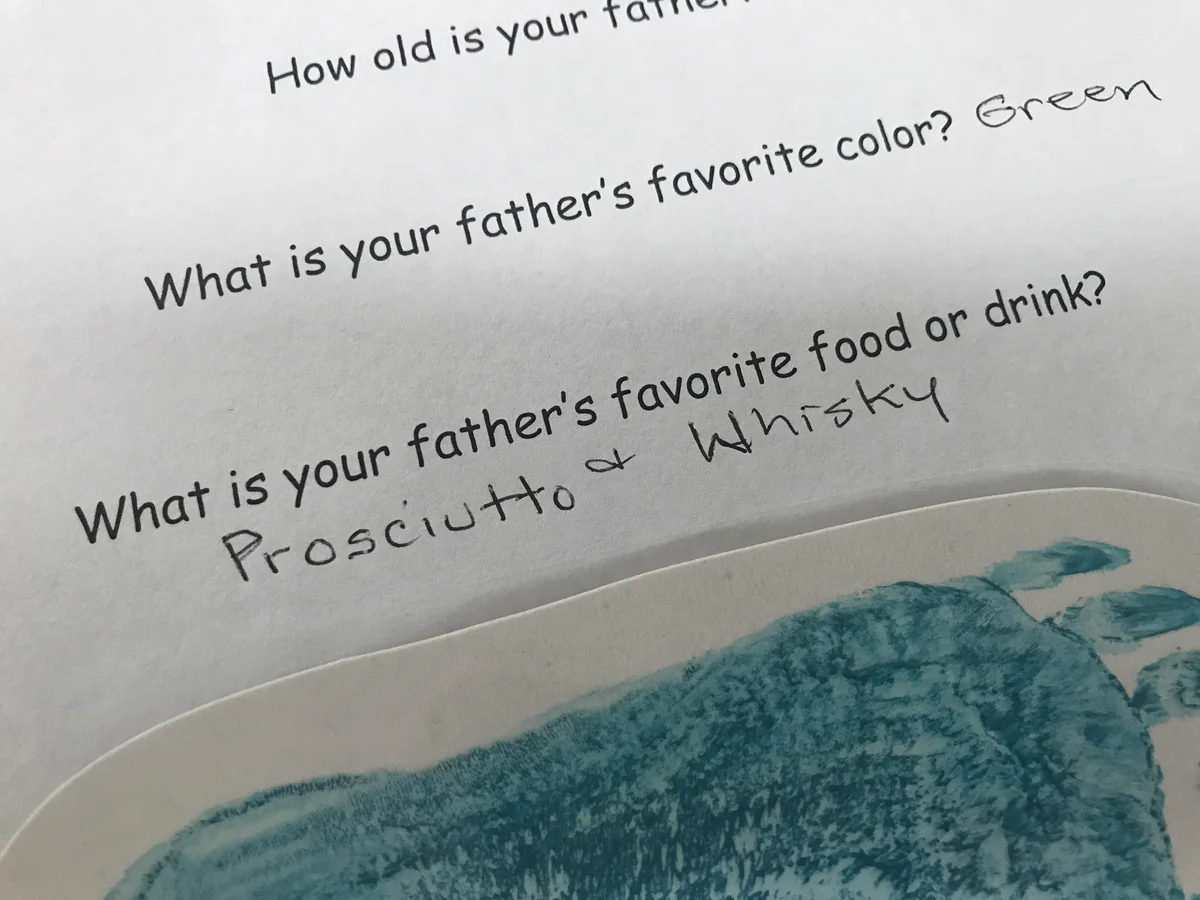 How old is your father
What is your father's favorite color? Green
What is your father's favorite food or drink?
Prosciutto & Whisky